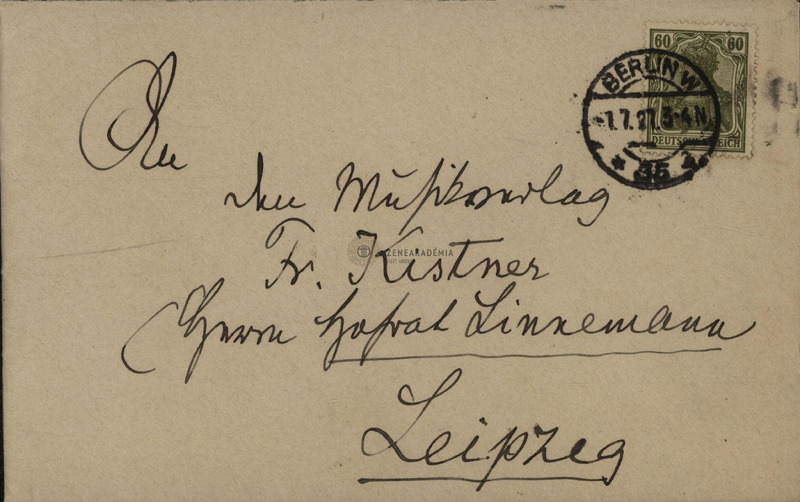 60 60
BERLIN W
-7.7.21.3-4N.
* 35 a
DEUTSCHES REICH
An
den Musikverlag
ZENEAKADÉMIA
Fr. Kistner
Herrn Hofrat Linnemann
Leipzig